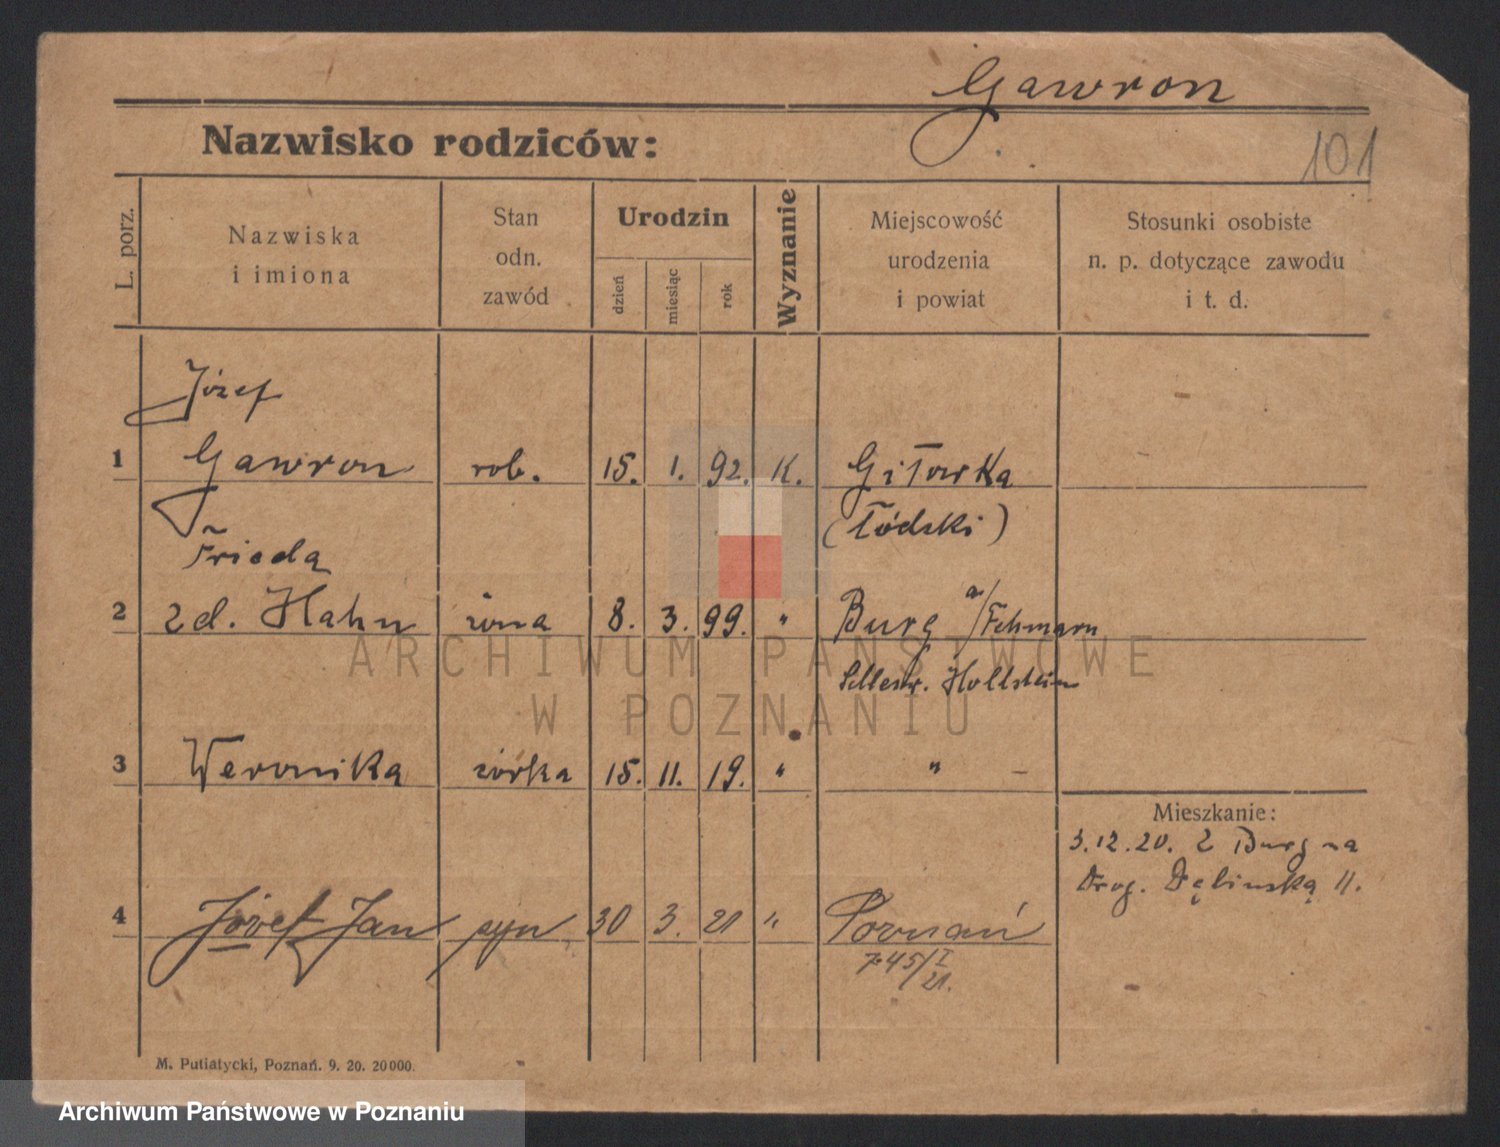 Gawron
Nazwisko rodziców:
101
L. porz.
Nazwiska
i imiona
Stan
odn.
zawód
Urodzin
dzień
miesiąc
rok
Wyznanie
Miejscowość
urodzenia
i powiat
Stosunki osobiste
n. p. dotyczące zawodu
i t. d.
Józef
1 Gawron rob. 15. 1. 92. K. Gitowka
(Łódzki)
Frieda
2 zd. Hahn żona 8. 3. 99. " Burg a/Fehmarn
Schlesw. Hollstein
3 Weronika córka 15. 11. 19. " "
Mieszkanie:
3.12.20. Z Burg na
Drog. Dębinską 11.
4 Józef Jan syn 30 3. 21 " Poznań
745/I
21.
M. Putiatycki, Poznań. 9. 20. 20000.
ARCHIWUM PAŃSTWOWE
W POZNANIU
Archiwum Państwowe w Poznaniu